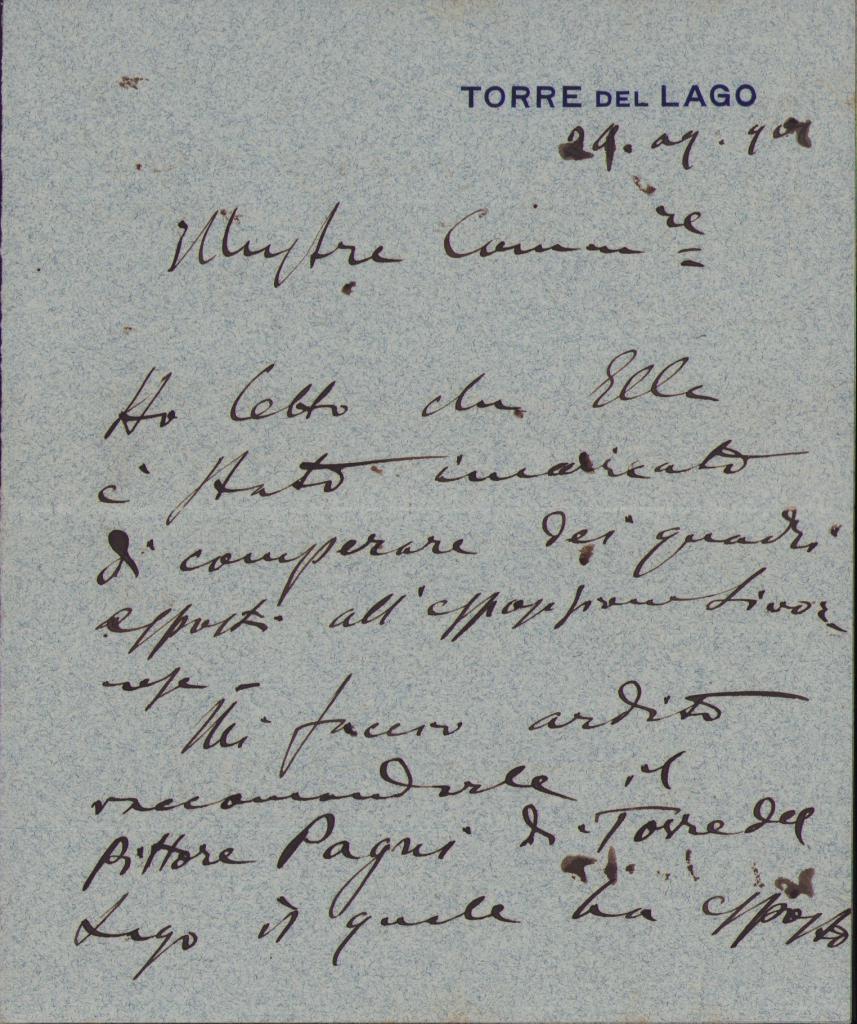 TORRE DEL LAGO
24. ag. 901
Illustre Comm re
Ho letto che Ella
è stato incaricato
di comperare dei quadri
esposti all'esposizione Livor-
nese -
Mi faccio ardito
raccomandarle il
pittore Pagni di Torre del
Lago il quale ha esposto